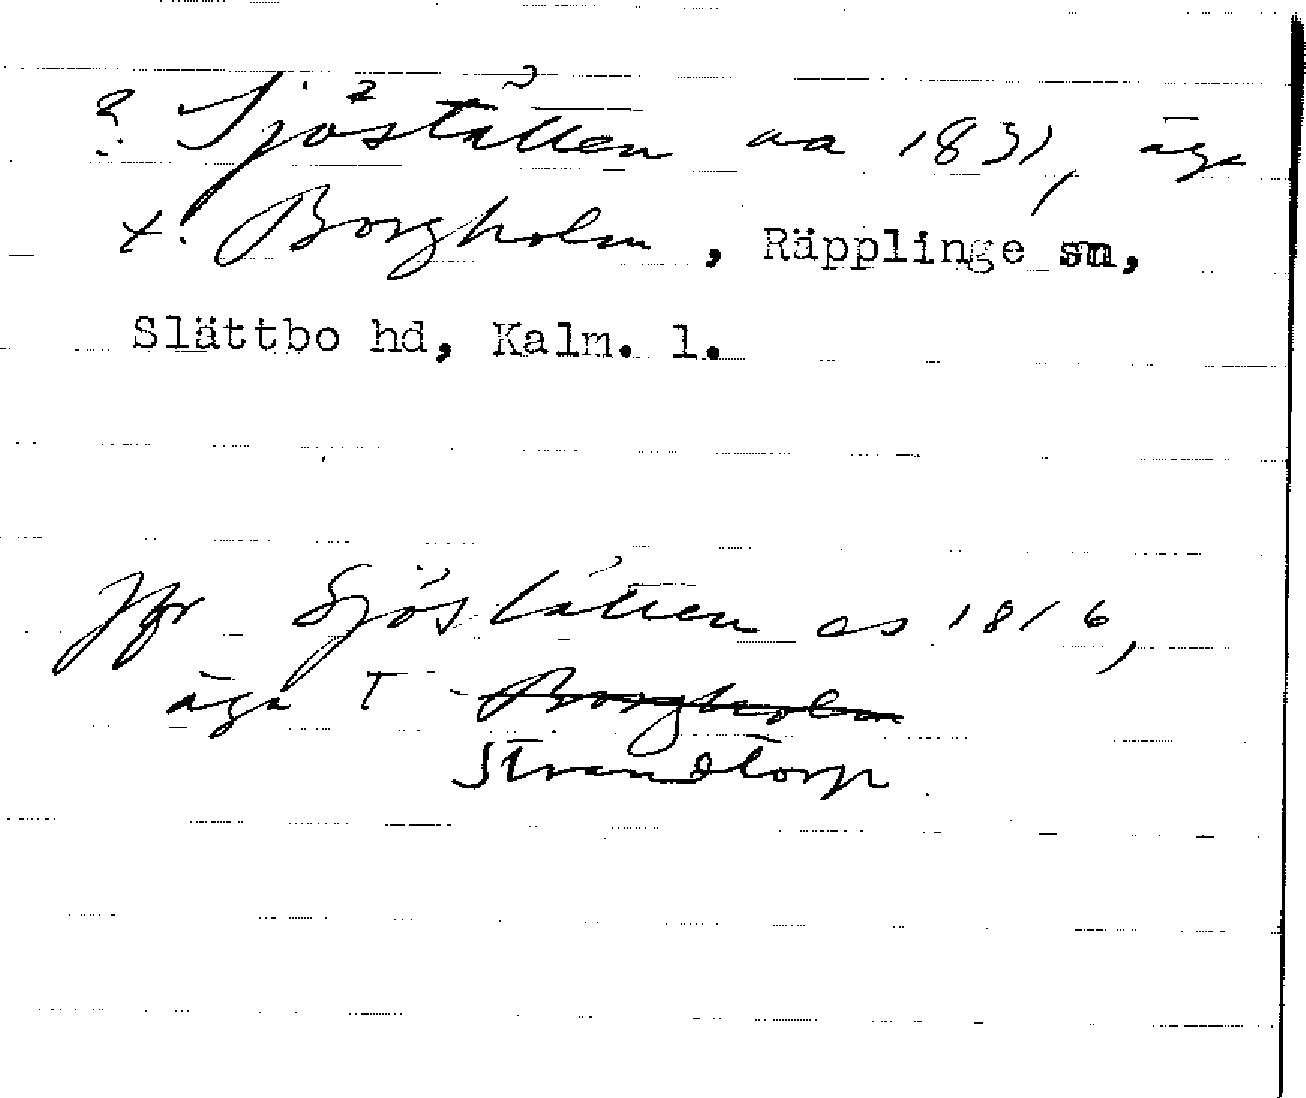 ? Sjöstätten aa 1831, äga
t. Borgholm, Räpplinge sn,
Slättbo hd, Kalm. l.
Jfr Sjöstätten as 1816,
äga t Borgholm
Strandtorp